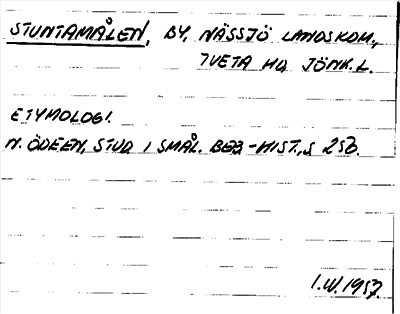 STUNTAMÅLEN, BY, NÄSSJÖ LANDSKOM.,
TVETA HD, JÖNK. L.
ETYMOLOGI.
N. ÖDEEN, STUD. I SMÅL. BEB-HIST., S. 256.
1.VII.1957.